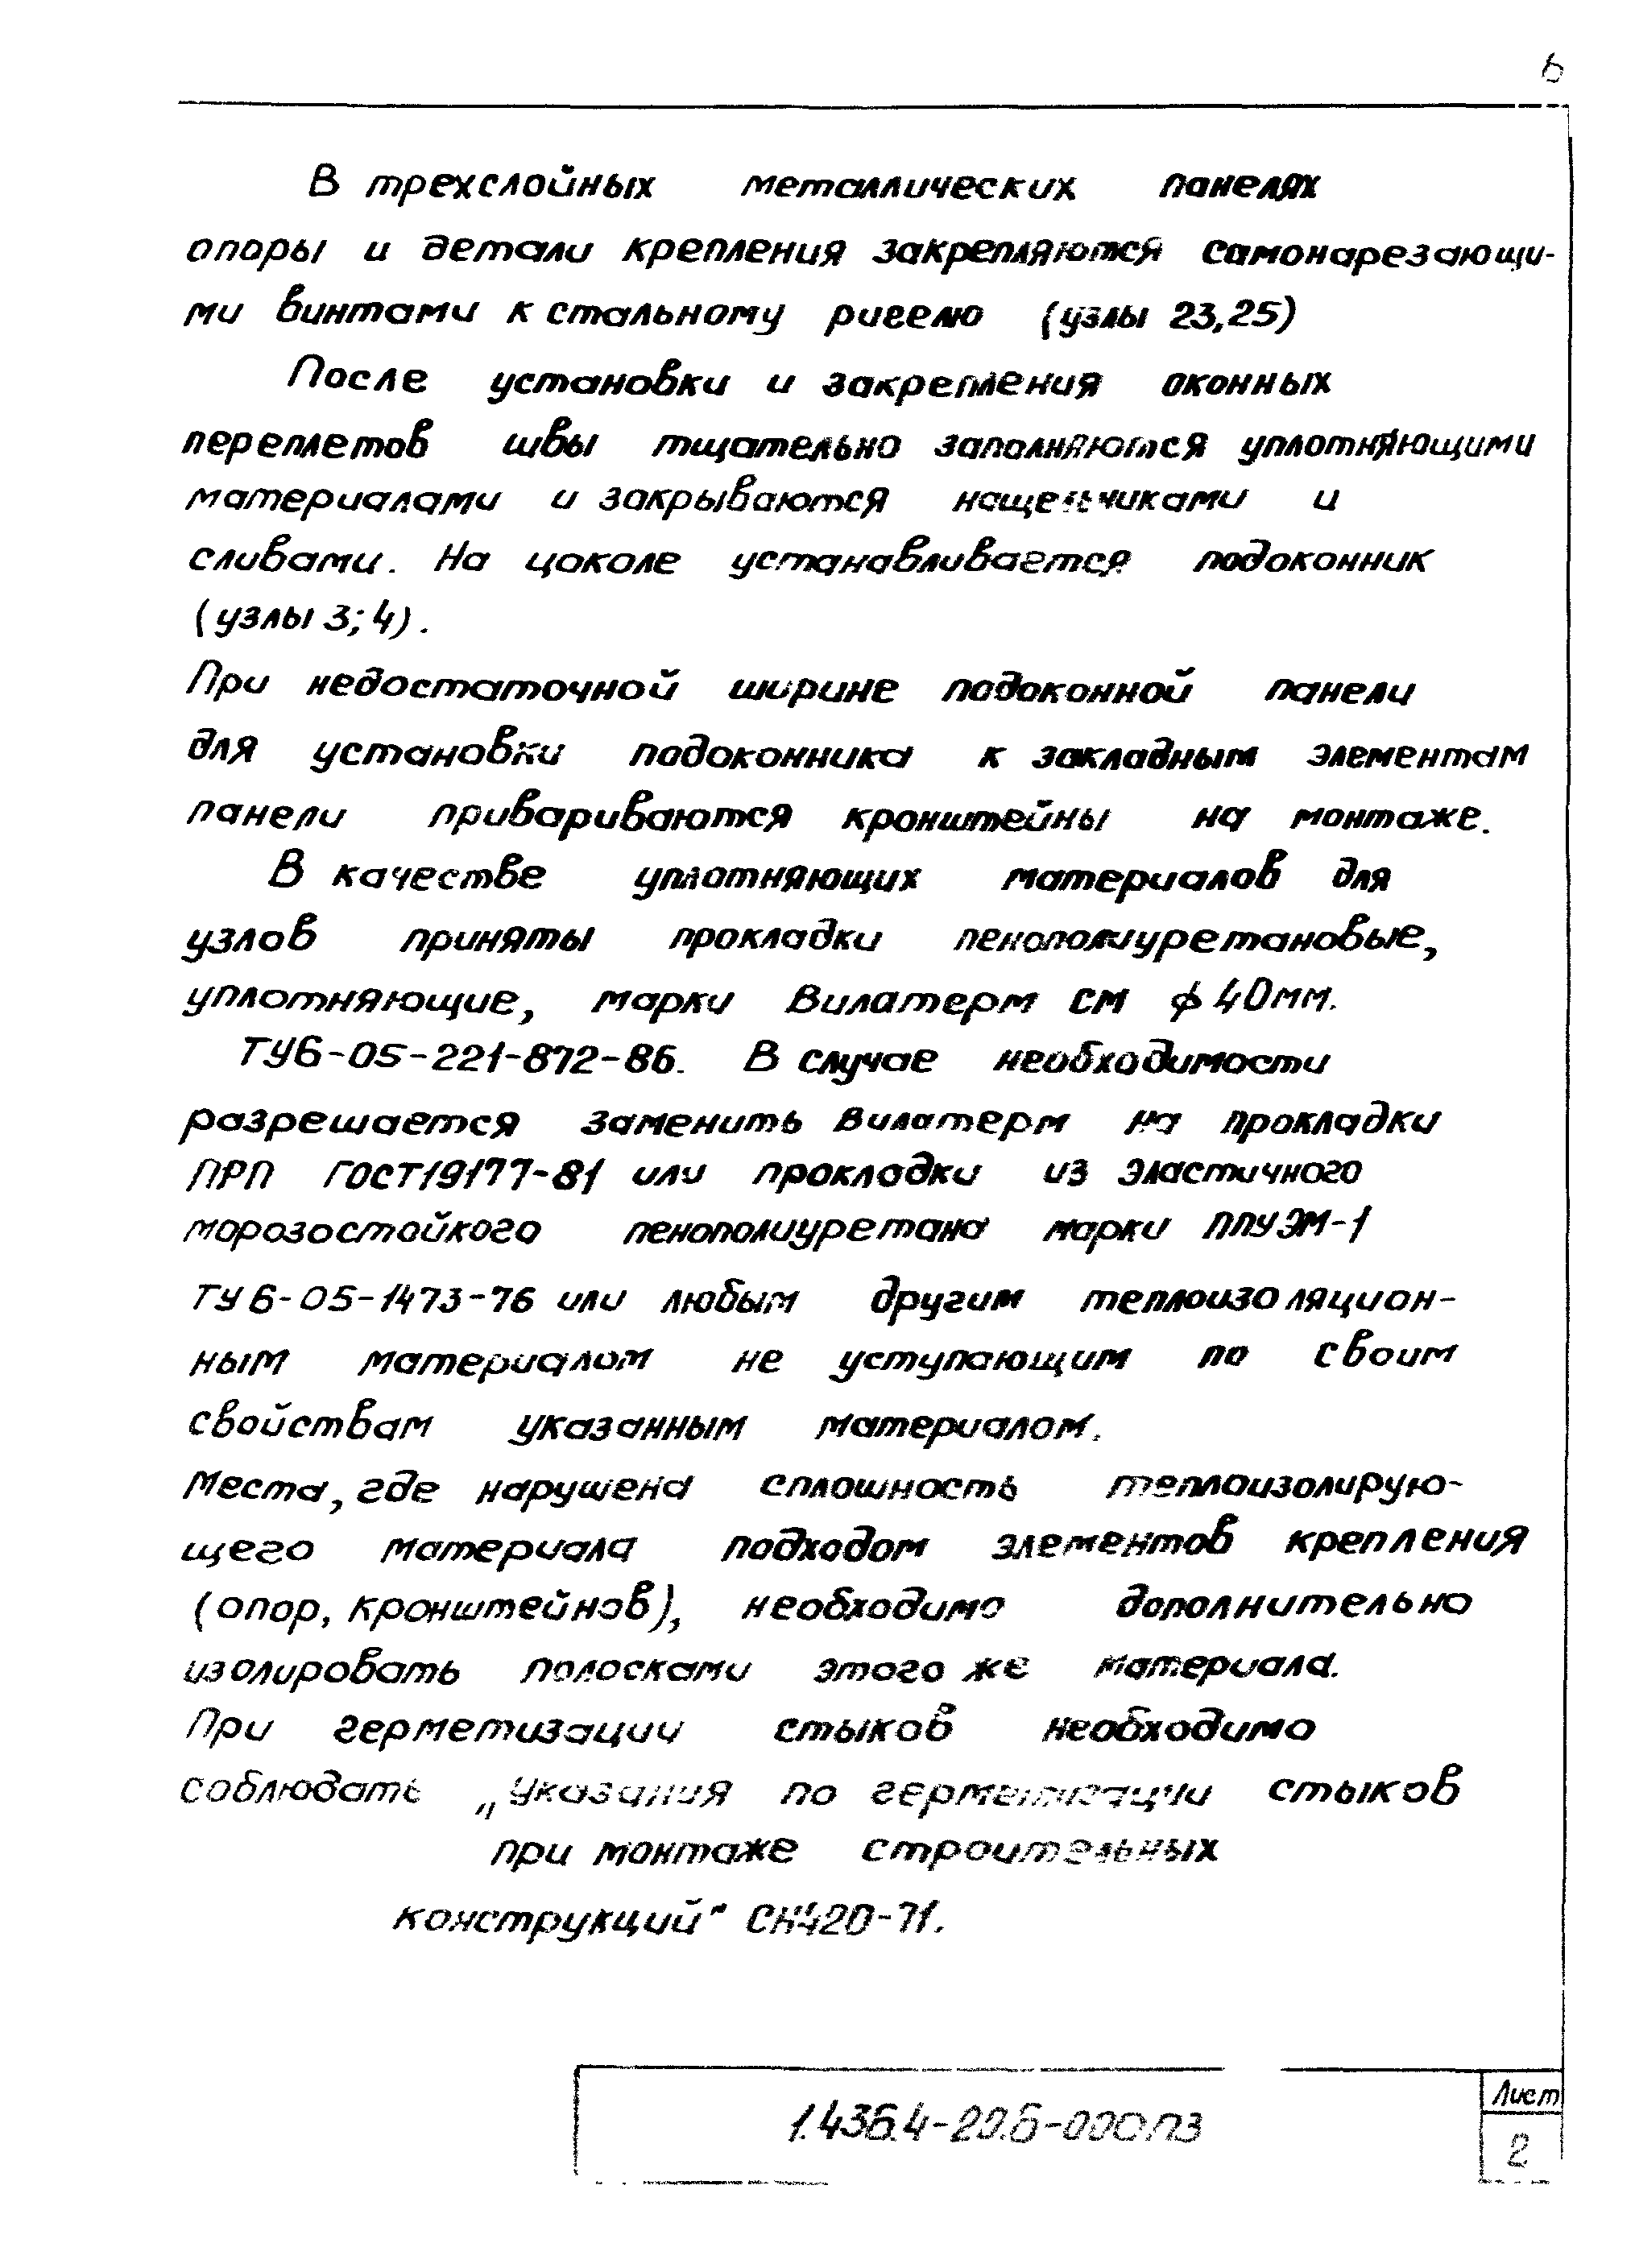 6
В трехслойных металлических панелях
опоры и детали крепления закрепляются самонарезающи-
ми винтами к стальному ригелю (узлы 23,25)
После установки и закрепления оконных
переплетов швы тщательно заполняются уплотняющими
материалами и закрываются нащельчиками и
сливами. На цоколе устанавливается подоконник
(узлы 3;4).
При недостаточной ширине подоконной панели
для установки подоконника к закладным элементам
панели привариваются кронштейны на монтаже.
В качестве уплотняющих материалов для
узлов приняты прокладки пенополиуретановые,
уплотняющие, марки Вилатерм СМ ф 40мм.
ТУ6-05-221-872-86. В случае необходимости
разрешается заменить Вилатерм на прокладки
ПРП ГОСТ19177-81 или прокладки из эластичного
морозостойкого пенополиуретана марки ППУЭМ-1
ТУ6-05-1473-76 или любым другим теплоизоляцион-
ным материалом не уступающим по своим
свойствам указанным материалом.
Места, где нарушена сплошность теплоизолирую-
щего материала подходом элементов крепления
(опор, кронштейнов), необходимо дополнительно
изолировать полосками этого же материала.
При герметизации стыков необходимо
соблюдать „Указания по герметизации стыков
при монтаже строительных
конструкций" СН420-71.
1.436.4-20.6-000ПЗ
Лист
2